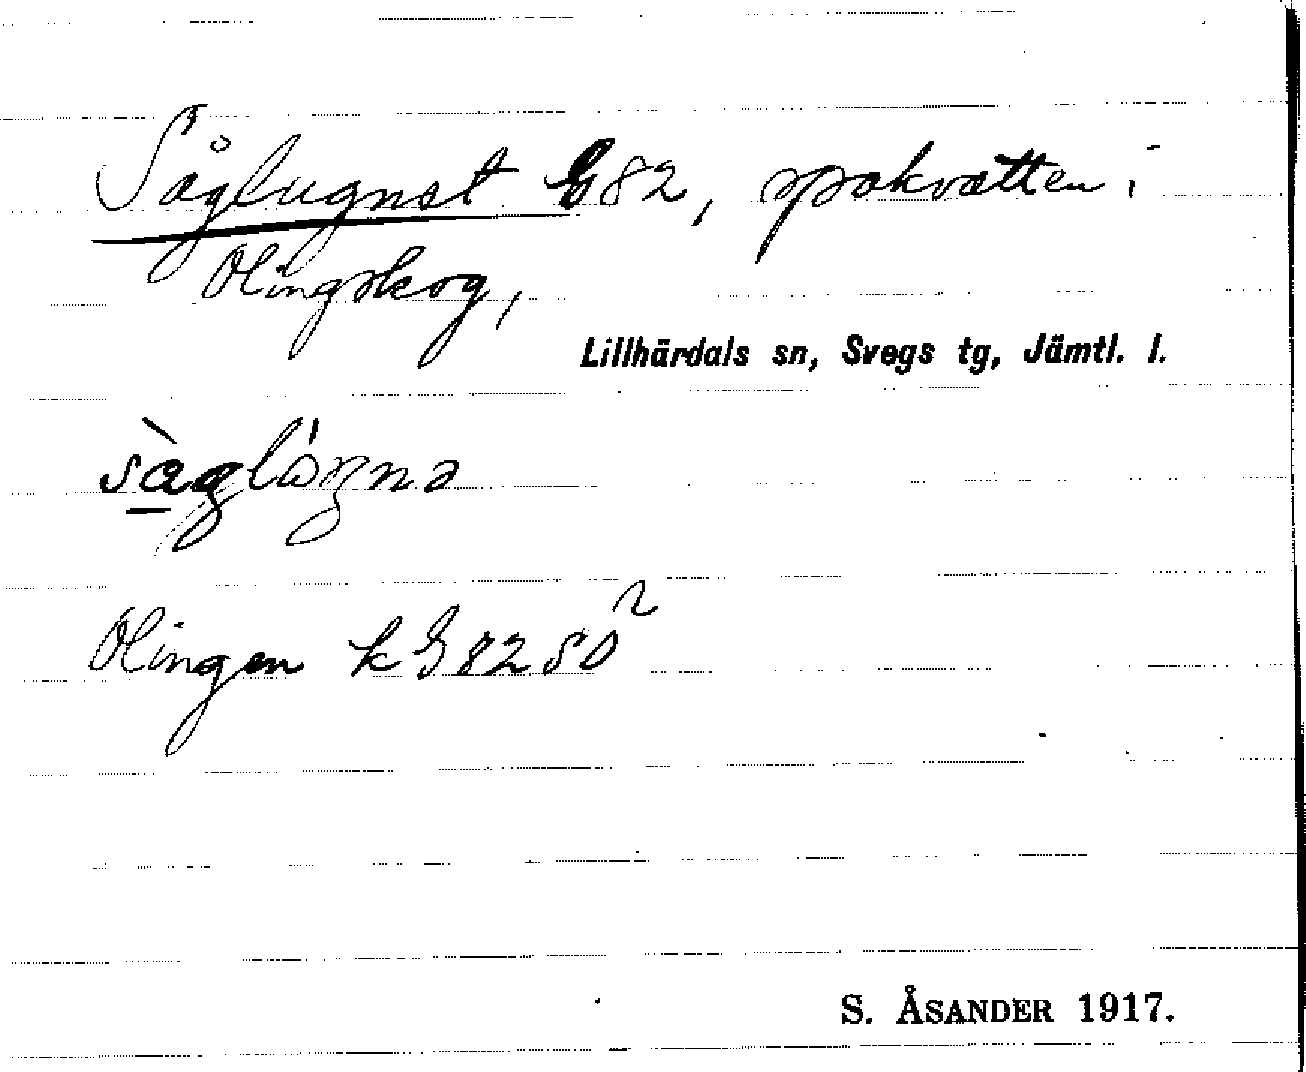 Såglugnet G82, spakvatten i
Olingskog,
Lillhärdals sn, Svegs tg, Jämtl. l.
Olingen k G82 SO
S. ÅSANDER 1917.